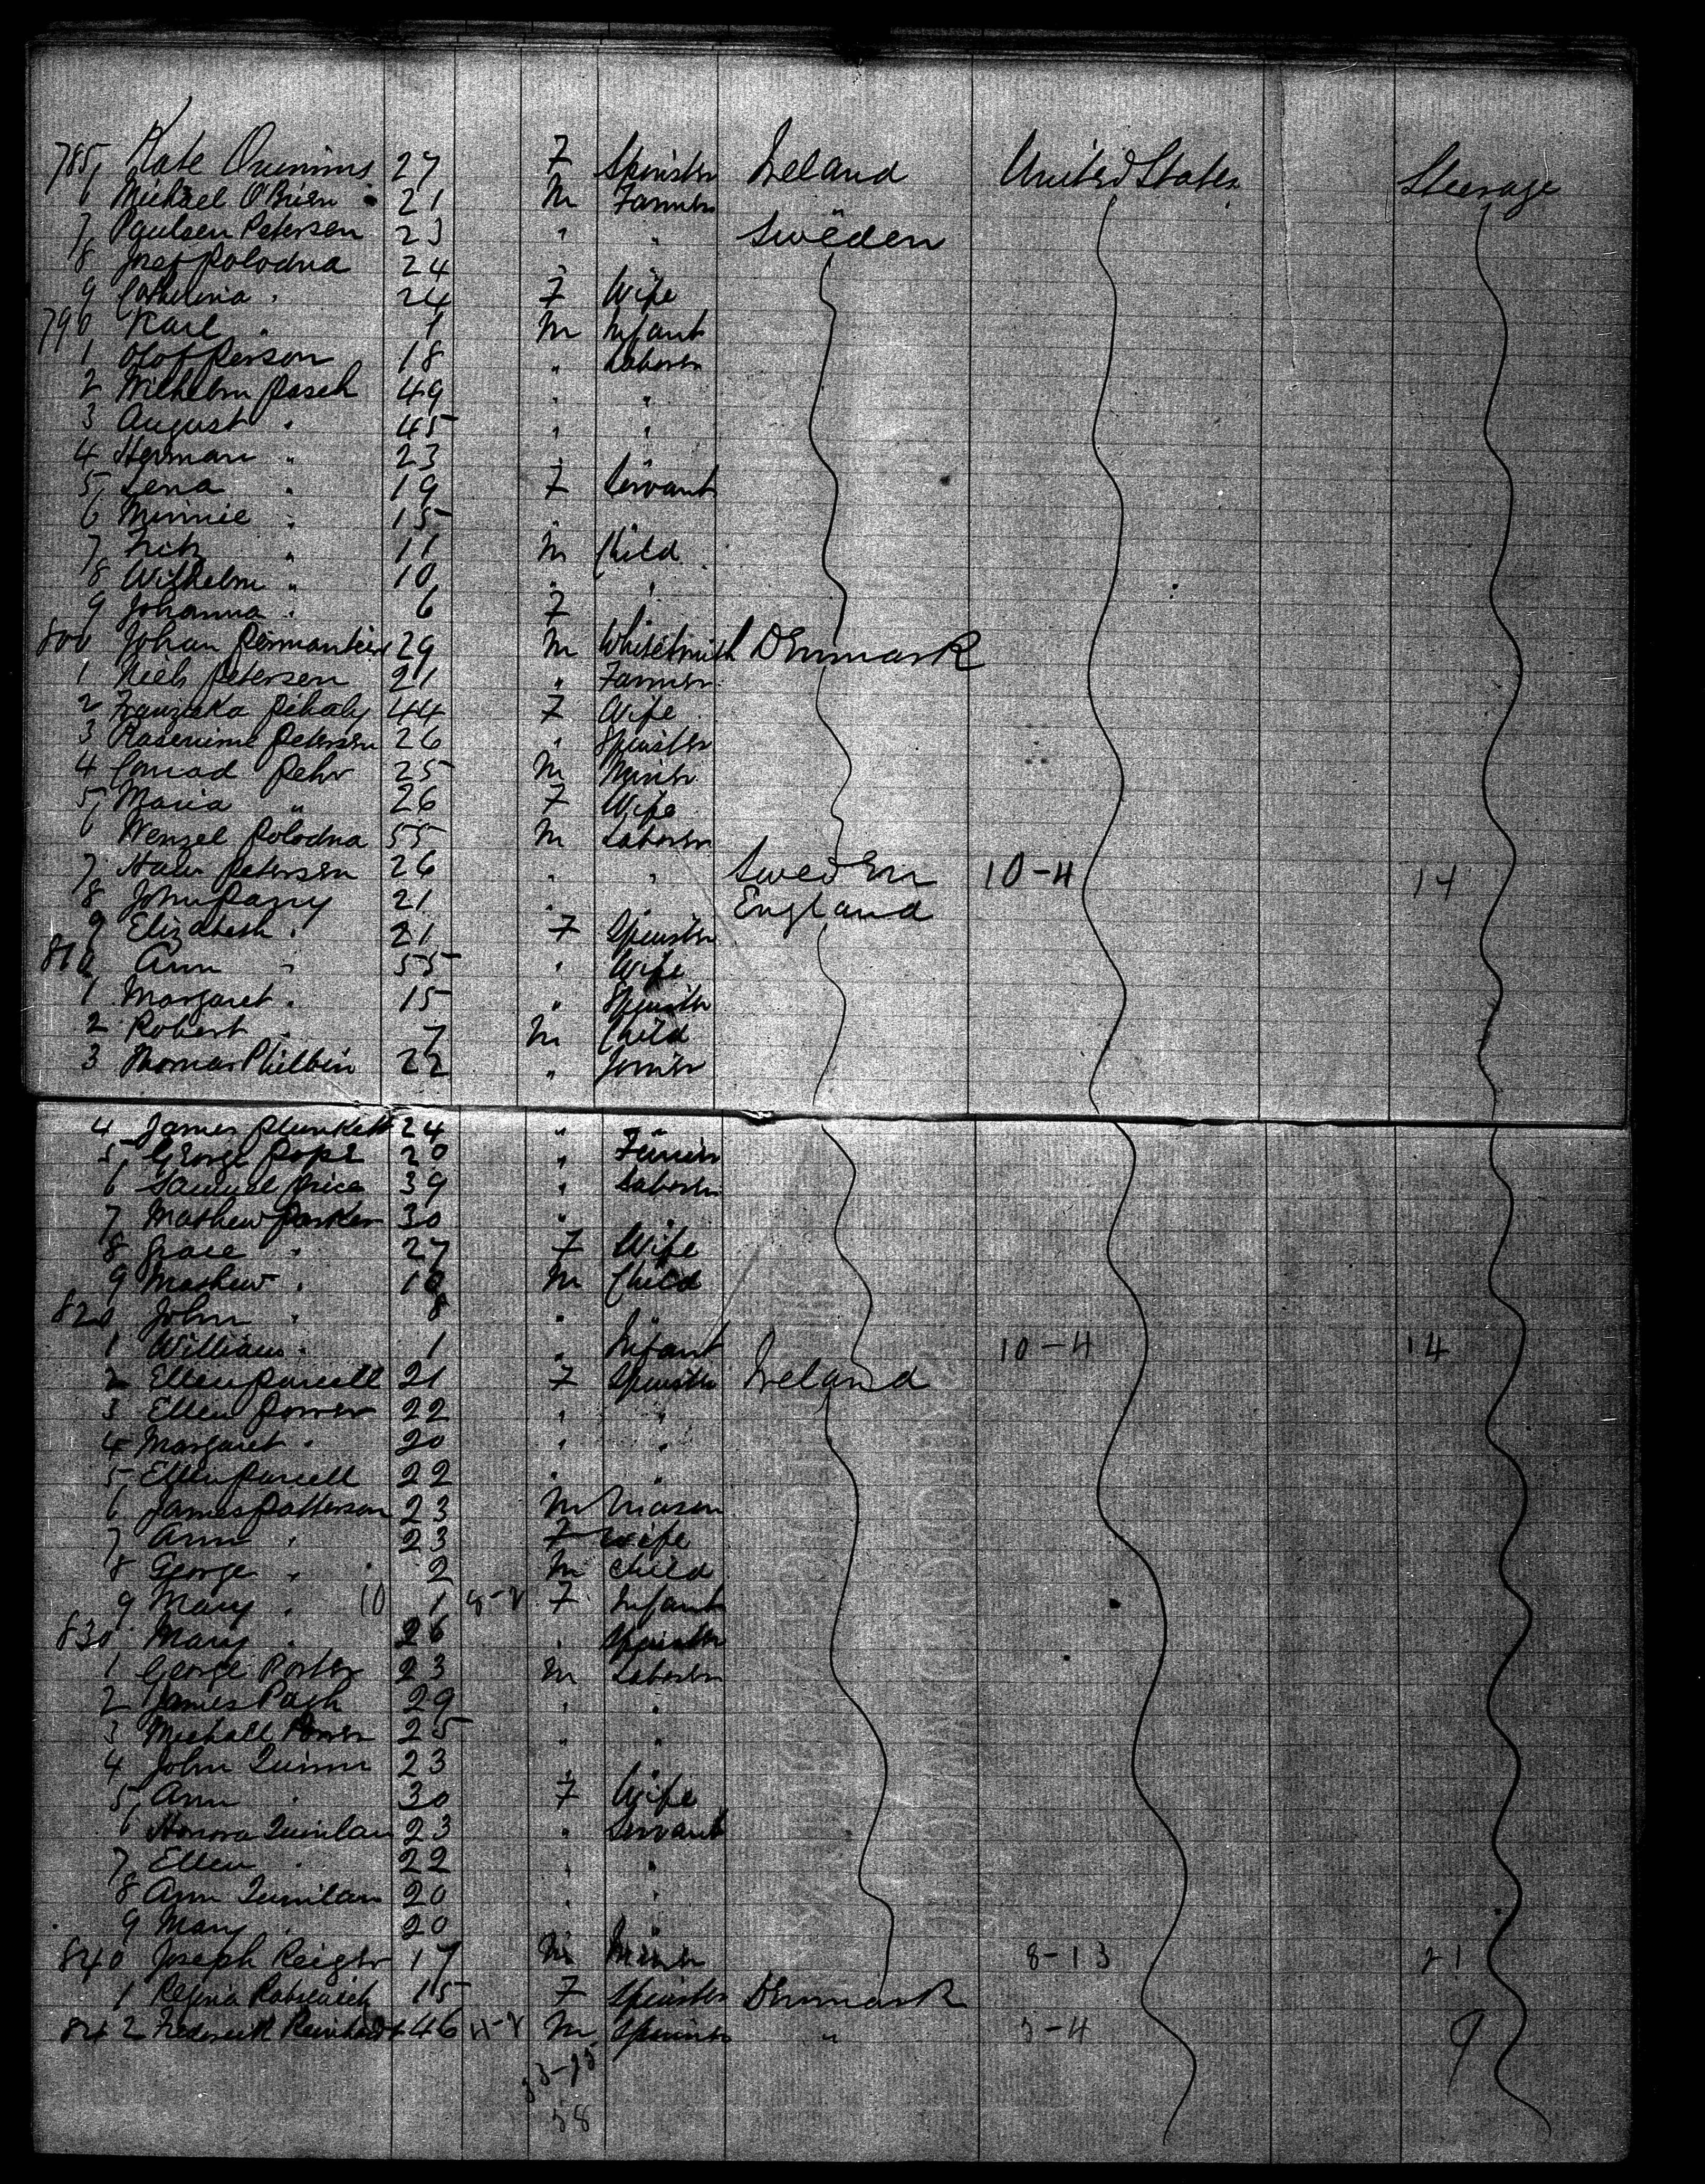 785 Kate Orumins 27 F Spinster Ireland United States Steerage
6 Michael O'Brien 21 M Farmer
7 Paulsen Petersen 23 " " Sweden
8 Josef Polodna 24 "
9 Catherina " 24 F Wife
790 Karl " 1 M Infant
1 Olof Person 18 " Laborer
2 Wilhelm Pasch 49 " "
3 August " 45 " "
4 Herman " 23 "
5 Lena " 19 F Servant
6 Minnie " 15 "
7 Fritz " 11 M Child
8 Wilhelm " 10 " "
9 Johanna " 6 F
800 Johan 29 M Whitesmith Denmark
1 Niels Petersen 21 " Farmer
2 Franziska Pihaly 44 F Wife
3 Petersen 26 " Spinster
4 Conrad Pehr 25 M
5 Maria " 26 F Wife
6 Wenzel Polodna 55 M Laborer
7 Petersen 26 " " Sweden 10-4 14
8 John Parry 21 " England
9 Elizabeth " 21 F Spinster
810 Ann " 55 " Wife
1 Margaret " 15 " Spinster
2 Robert " 7 M Child
3 Thomas Philbin 22 " Joiner
4 James Plunkett 24 " "
5 George Pope 20 "
6 Samuel Price 39 " Laborer
7 Mathew Parker 30 " "
8 Grace " 27 F Wife
9 Mathew " 10 M Child
820 John " 8 "
1 William " 1 " Infant 10-4 14
2 Ellen Purcell 21 F Spinster Ireland
3 Ellen Power 22 " "
4 Margaret " 20 " "
5 Ellen Purcell 22 " "
6 James Patterson 23 M Mason
7 Ann " 23 F Wife
8 George " 2 M Child
9 Mary " 10 1 F Infant
830 Mary " 26 " Spinster
1 George Porter 23 M Laborer
2 James 29 " "
3 Michall Power 25 " "
4 John Quinn 23 "
5 Ann " 30 F Wife
6 Honora Quinlan 23 " Servant
7 Ellen " 22 " "
8 Ann Quinlan 20 " "
9 Mary " 20 "
840 Joseph Reiger 17 M Miner 8-13 21
1 Regina 15 F Spinster Denmark
842 Frederick Reinhardt 46 M " 5-4 9
58